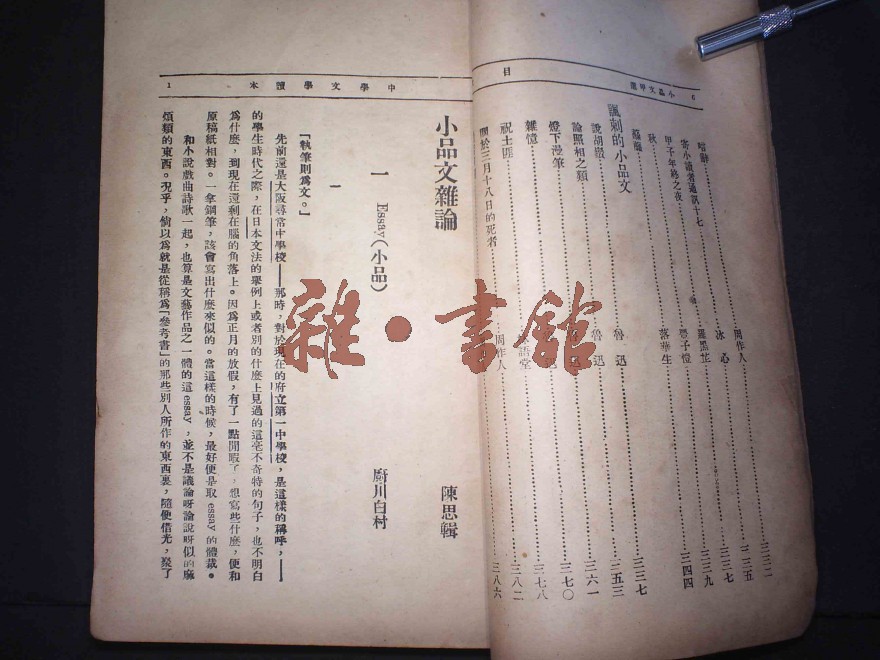 6 小品文甲選
目
唁辭 周作人
寄小讀者通訊十七 冰心 三三五
甲子年終之夜 羅黑芷 三三七
秋 豐子愷 三三九
落華生 三四四
諷刺的小品文
說胡鬚 魯迅 三四七
論照相之類 魯迅 三五三
燈下漫筆 三六一
雜憶 三七〇
祝土匪 語堂 三八二
關於三月十八日的死者 周作人 三八六
中學文學讀本 1
小品文雜論 陳思輯
一 Essay(小品) 廚川白村
一
「執筆則爲文。」
先前還是大阪尋常中學校——那時,對於現在的府立第一中學校,是這樣的稱呼,——
的學生時代之際,在日本文法的舉例上或者別的什麽上見過的這毫不奇特的句子,也不明白
爲什麽,到現在還剩在腦的角落上。因爲正月的放假,有了一點閒暇了,想寫些什麽,便和
原稿紙相對。一拿鋼筆,該會寫出什麽來似的。當這樣的時候,最好便是取essay的體裁。
和小說戲曲詩歌一起,也算是文藝作品之一體的這essay,並不是議論呀論說呀似的麻
煩類的東西。況乎,倘以爲就是從稱爲「參考書」的那些別人所作的東西裏,隨便借光,聚了
雜·書館